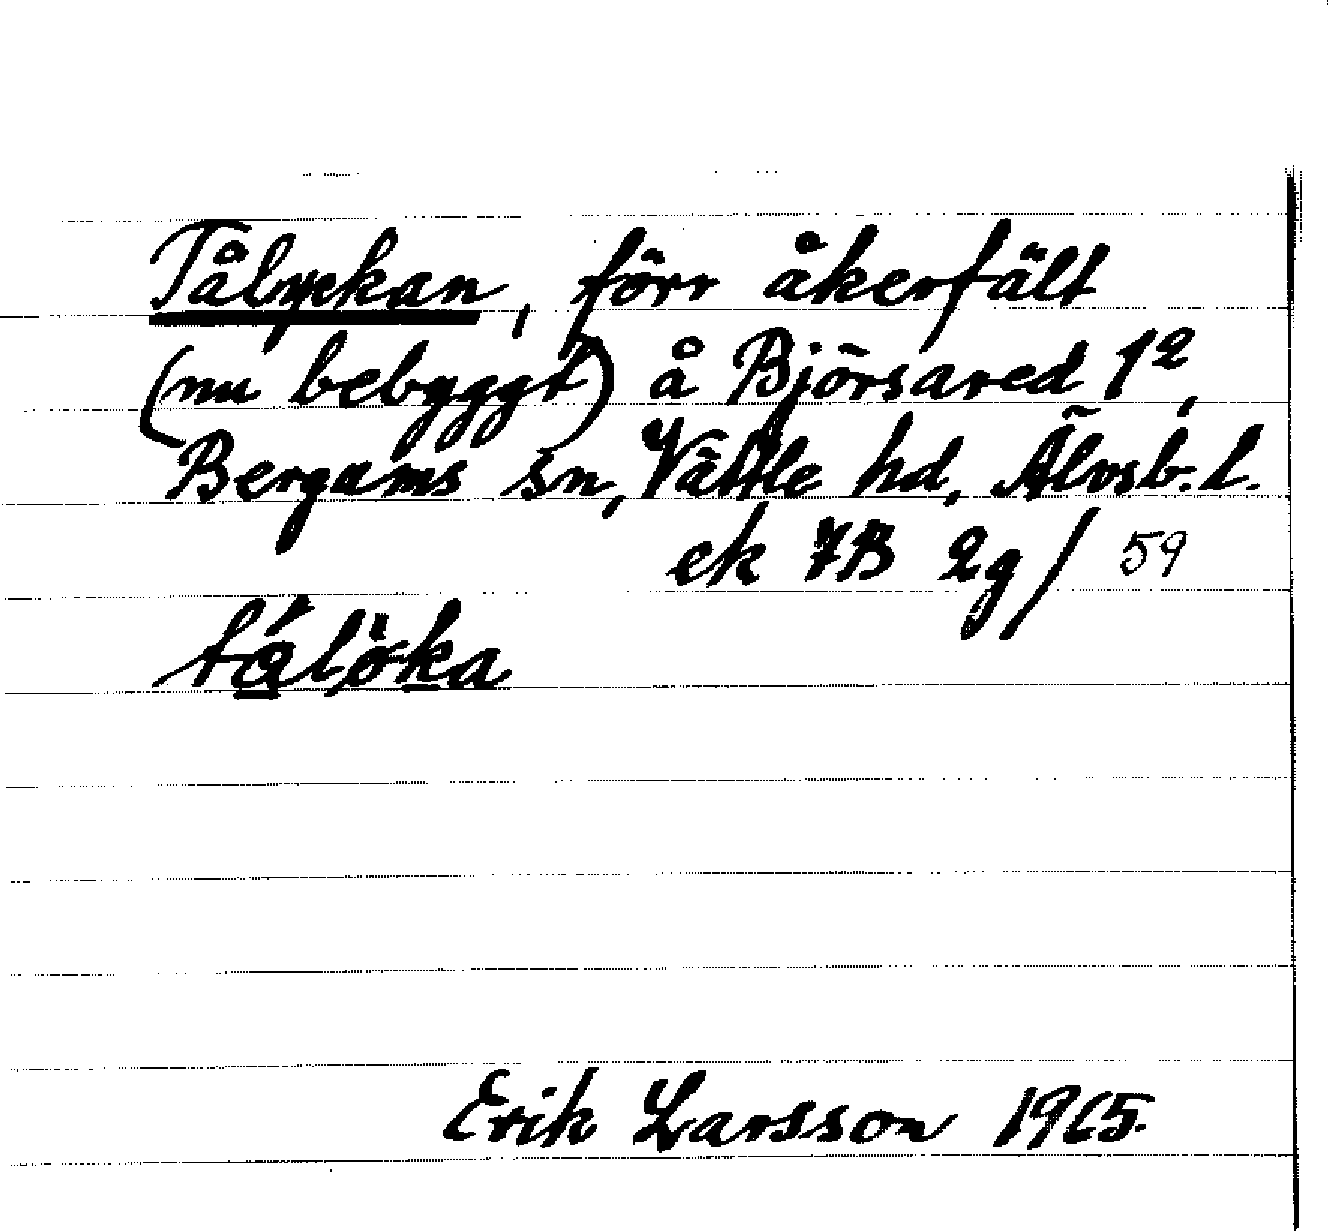 Tålyckan, förr åkerfält
(nu bebyggt) å Björsared 1²,
Bergums sn, Vättle hd, Älvsb. l.
ek 7B 2g/59
tålöka
Erik Larsson 1965.